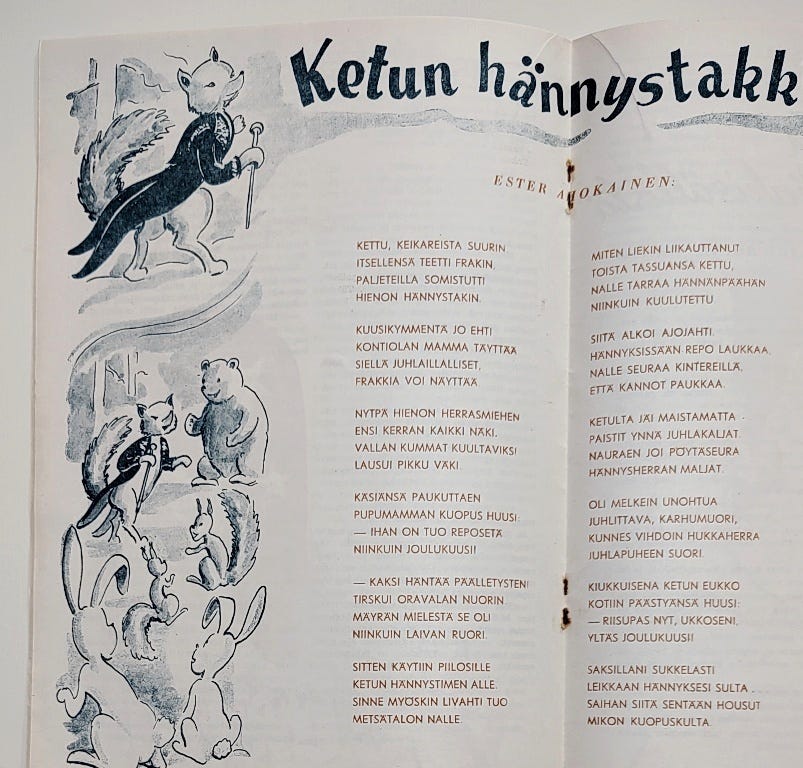 Ketun hännystakk
ESTER AHOKAINEN:
KETTU, KEIKAREISTA SUURIN
ITSELLENSÄ TEETTI FRAKIN,
PALJETEILLA SOMISTUTTI
HIENON HÄNNYSTAKIN.
KUUSIKYMMENTÄ JO EHTI
KONTIOLAN MAMMA TÄYTTÄÄ
SIELLÄ JUHLAILLALLISET,
FRAKKIA VOI NÄYTTÄÄ
NYTPÄ HIENON HERRASMIEHEN
ENSI KERRAN KAIKKI NÄKI.
VALLAN KUMMAT KUULTAVIKSI
LAUSUI PIKKU VÄKI.
KÄSIÄNSÄ PAUKUTTAEN
PUPUMAMMAN KUOPUS HUUSI:
— IHAN ON TUO REPOSETÄ
NIINKUIN JOULUKUUSI!
— KAKSI HÄNTÄÄ PÄÄLLETYSTEN!
TIRSKUI ORAVALAN NUORIN.
MÄYRÄN MIELESTÄ SE OLI
NIINKUIN LAIVAN RUORI.
SITTEN KÄYTIIN PIILOSILLE
KETUN HÄNNYSTIMEN ALLE.
SINNE MYÖSKIN LIVAHTI TUO
METSÄTALON NALLE.
MITEN LIEKIN LIIKAUTTANUT
TOISTA TASSUANSA KETTU,
NALLE TARRAA HÄNNÄNPÄÄHÄN
NIINKUIN KUULUTETTU
SIITÄ ALKOI AJOJAHTI.
HÄNNYKSISSÄÄN REPO LAUKKAA,
NALLE SEURAA KINTEREILLÄ,
ETTÄ KANNOT PAUKKAA.
KETULTA JÄI MAISTAMATTA
PAISTIT YNNÄ JUHLAKALJAT.
NAURAEN JOI PÖYTÄSEURA
HÄNNYSHERRAN MALJAT.
OLI MELKEIN UNOHTUA
JUHLITTAVA, KARHUMUORI,
KUNNES VIHDOIN HUKKAHERRA
JUHLAPUHEEN SUORI.
KIUKKUISENA KETUN EUKKO
KOTIIN PÄÄSTYÄNSÄ HUUSI:
— RIISUPAS NYT, UKKOSENI,
YLTÄS JOULUKUUSI!
SAKSILLANI SUKKELASTI
LEIKKAAN HÄNNYKSESI SULTA.
SAIHAN SIITÄ SENTÄÄN HOUSUT
MIKON KUOPUSKULTA.